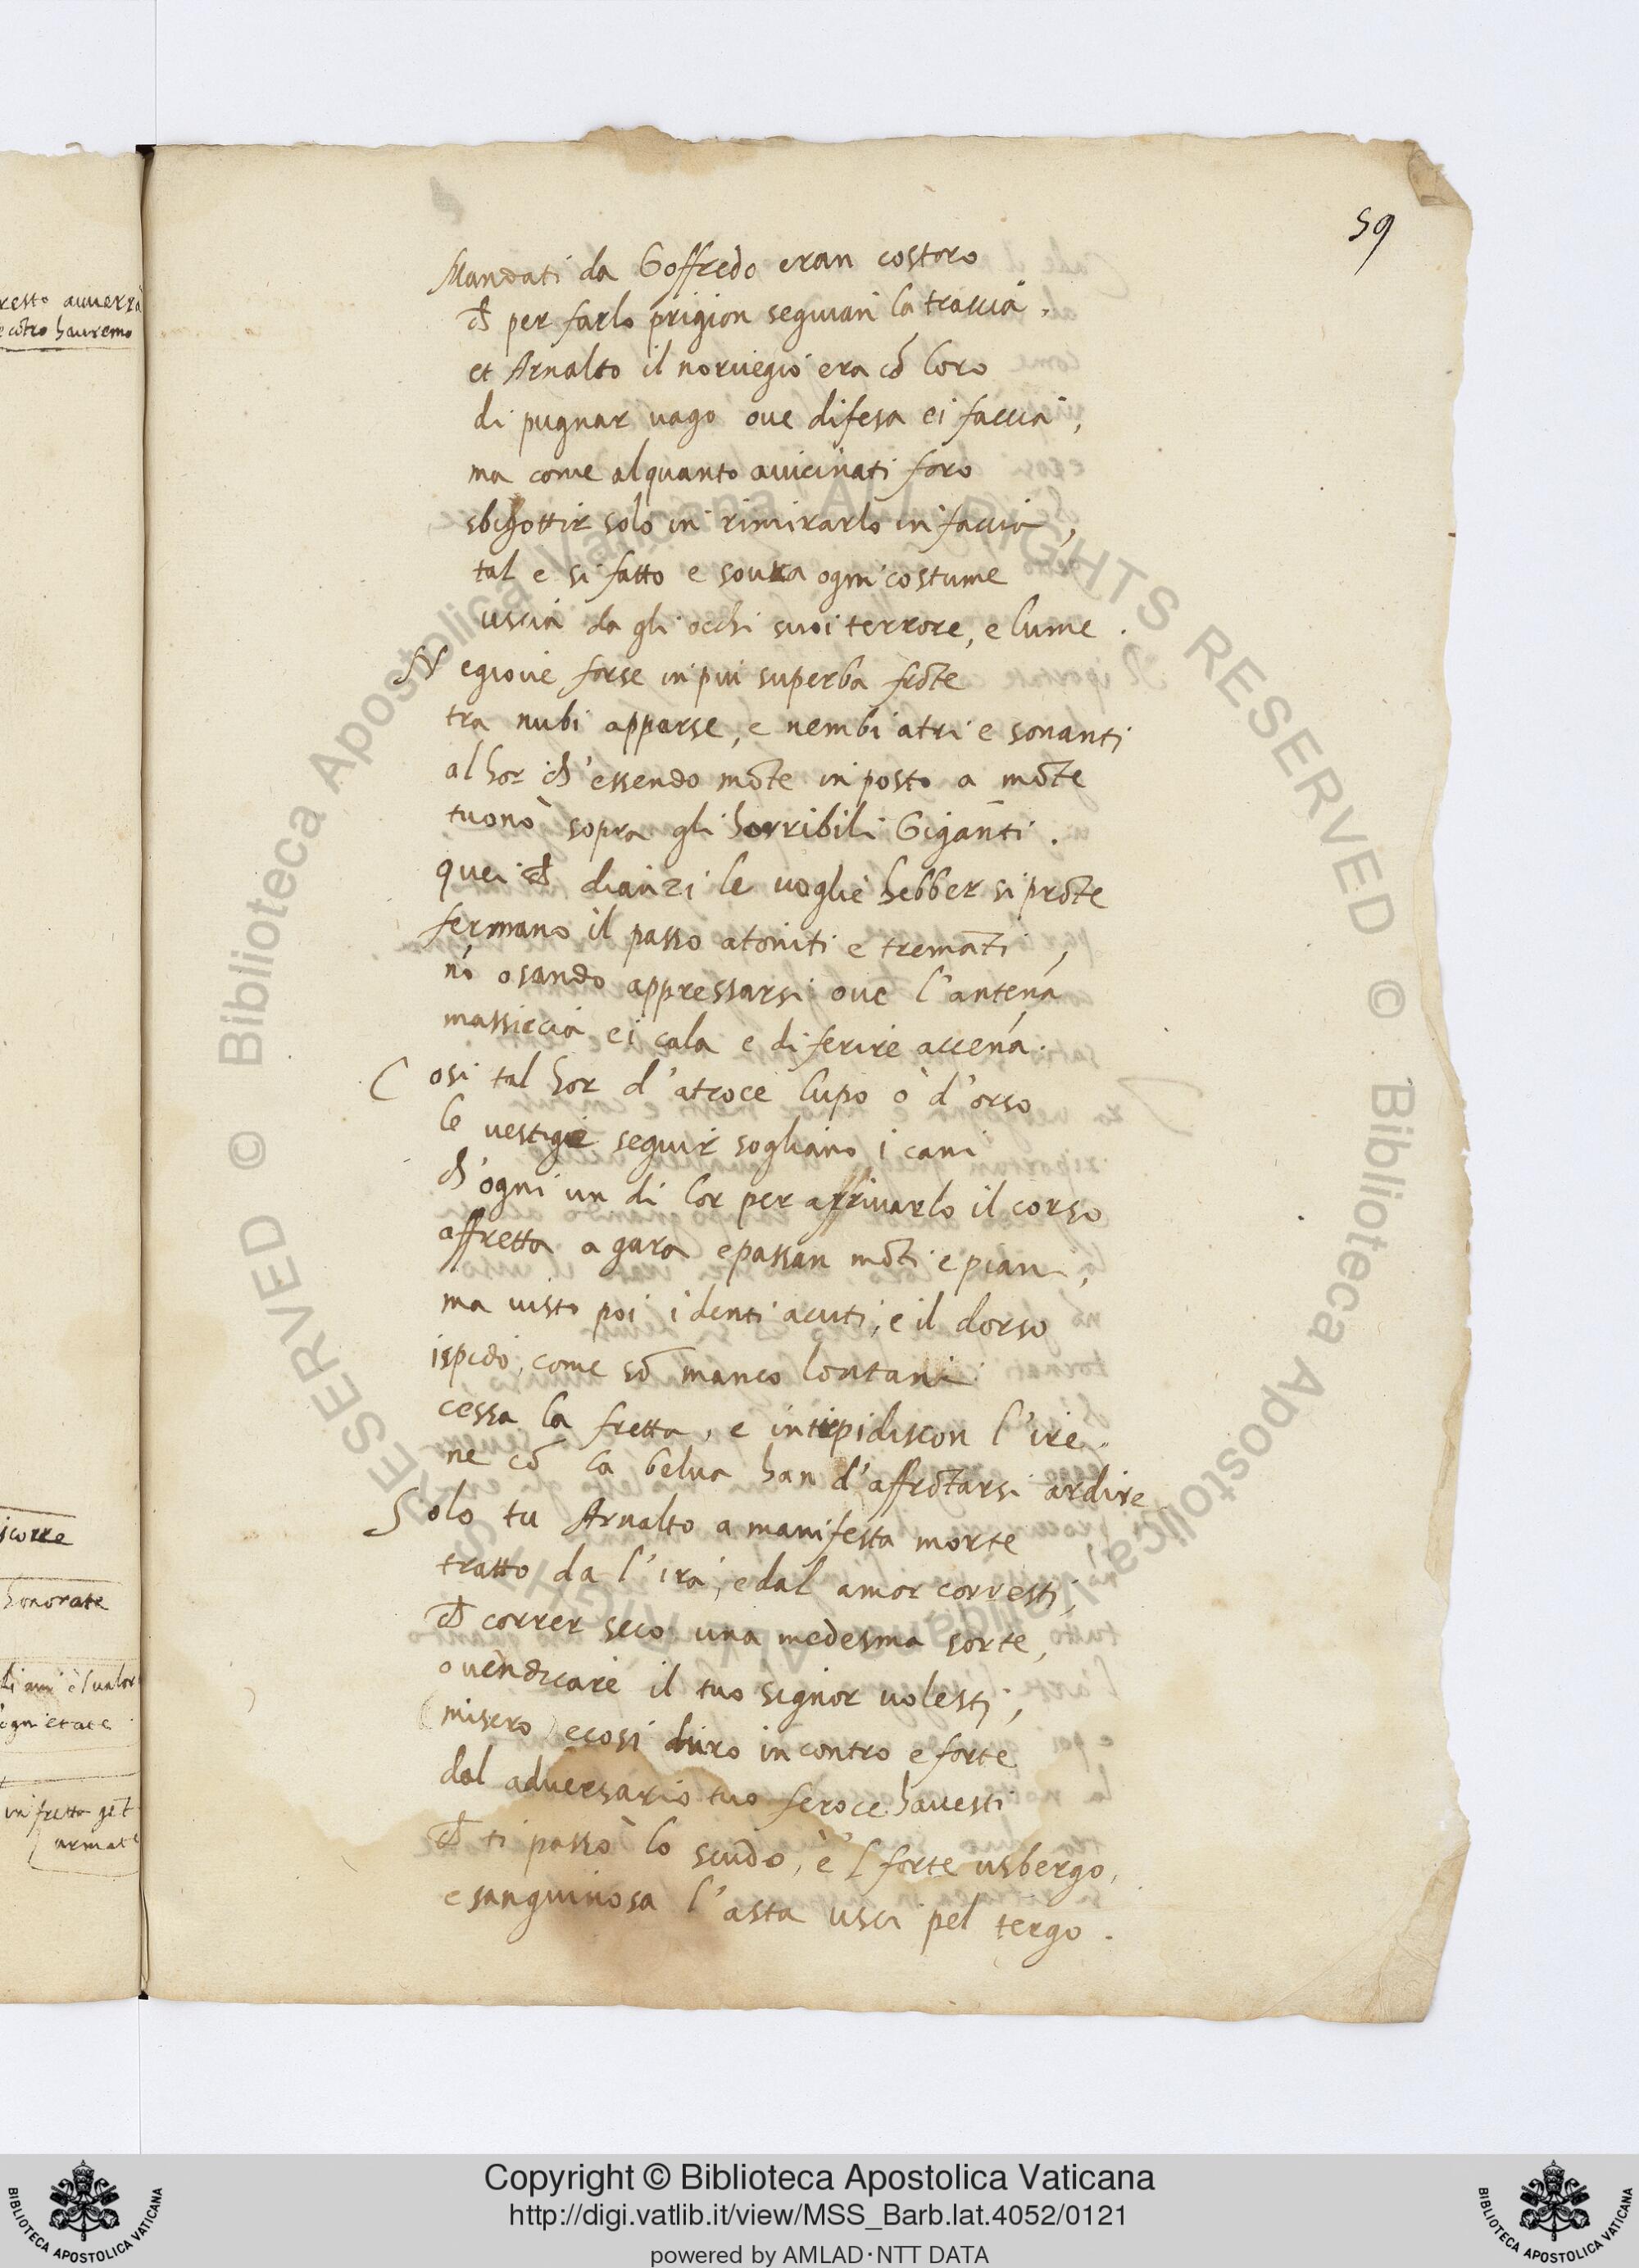 59
resto auuerrà
e cōtro hauremo
Mandati da Goffredo eran costoro
ch̄ per farlo prigion seguian la traccia.
et Arnalto il noruegio era cō loro
di pugnar uago oue difesa ei faccia,
ma come alquanto auicinati foro
sbigottir solo in rimirarlo in faccia,
tal e si fatto e soura ogni costume
uscia da gli occhi suoi terrore, e lume.
N egioue forse in piu superba frōte
tra nubi apparse, e nembi atri e sonanti
al hor ch̄'essendo mōte in posto a mōte
tuonò sopra gli horribili Gigāti.
quei ch̄ dianzi le uoglie hebber si prōte
fermano il passo atoniti e tremāti,
nō osando appressarsi oue l'antēna
massiccia ei cala e di ferire accēna.
C osi tal hor d'atroce lupo ò d'orso
le uestigie seguir sogliano i cani
ch̄'ogni un di lor per arriuarlo il corso
affretta a gara e passan mōti e piani,
ma uisto poi i denti acuti, e il dorso
ispido, come sō manco lontani
cessa la fretta, e intepidiscon l'ire.
ne cō la belua han d'affrōtarsi ardire
S olo tu Arnalto a manifesta morte
tratto da l'ira, e dal amor corresti,
ch̄ correr seco una medesma sorte,
o uendicare il tuo signor uolesti,
(misero) e cosi duro incontro e forte
dal aduersario tuo feroce hauesti
ch̄ ti passò lo scudo, e'l forte usbergo,
e sanguinosa l'asta usci pel tergo.
scorre
honorate
ogni etate
in fretta gēt
armate
© Biblioteca Apostolica Vaticana ALL RIGHTS RESERVED © Biblioteca Apostolica Vaticana ALL RIGHTS RESERVED
BIBLIOTECA APOSTOLICA VATICANA
Copyright © Biblioteca Apostolica Vaticana
http://digi.vatlib.it/view/MSS_Barb.lat.4052/0121
powered by AMLAD·NTT DATA
BIBLIOTECA APOSTOLICA VATICANA